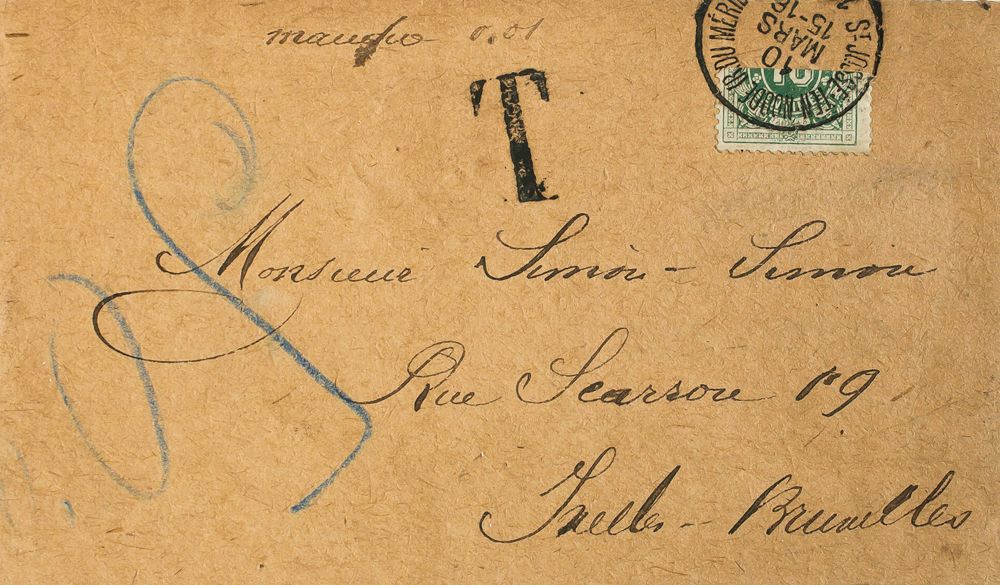 manque 0.01
T
ST JOSSE-TEN-NOODE (R. DU MÉRID
10
MARS
15-16
10
Monsieur Simon-Simon
Rue Scarron 19
Ixelles-Bruxelles